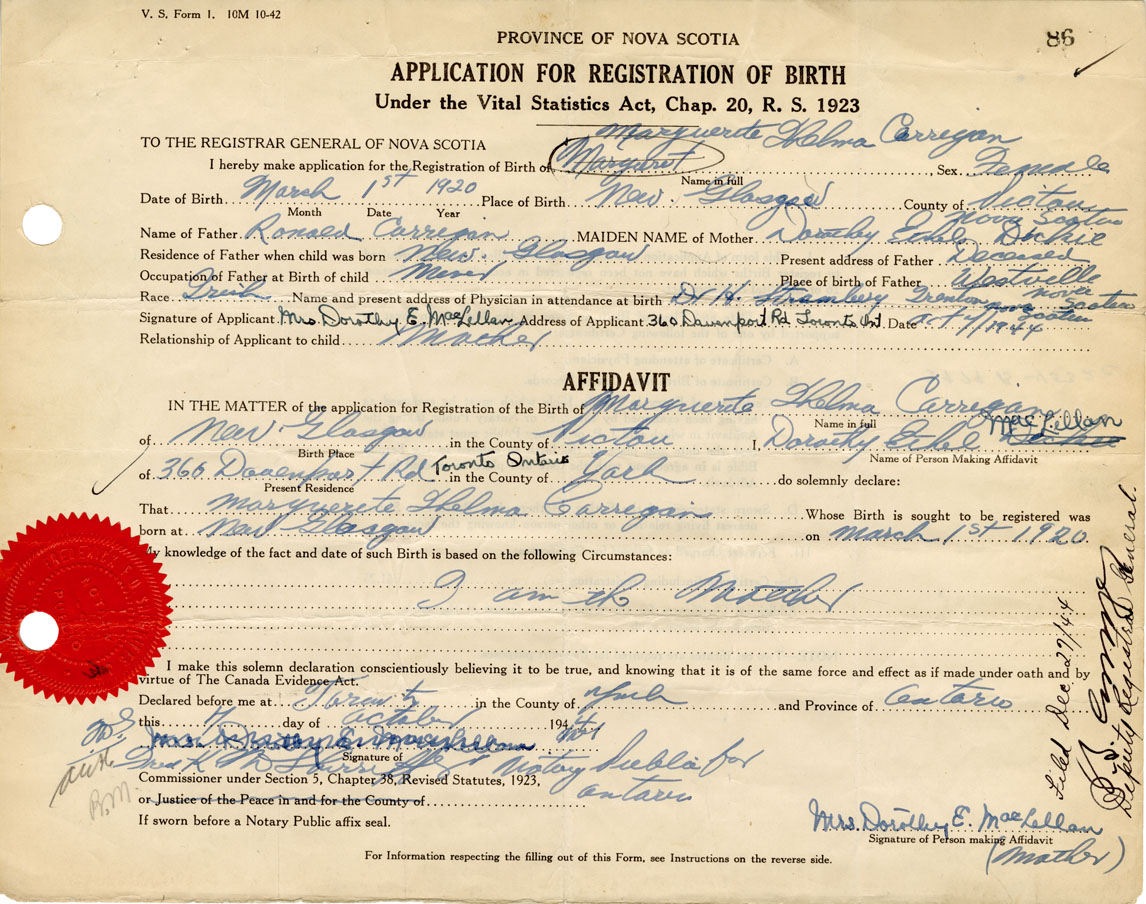 V. S. Form 1. 10M 10-42
86
PROVINCE OF NOVA SCOTIA
APPLICATION FOR REGISTRATION OF BIRTH
Under the Vital Statistics Act, Chap. 20, R. S. 1923
Marguerite Thelma Carregan
TO THE REGISTRAR GENERAL OF NOVA SCOTIA
I hereby make application for the Registration of Birth of Margaret Sex Female
Name in full
Date of Birth March 1st 1920 Place of Birth New Glasgow County of Pictou
Month Date Year
Nova Scotia
Name of Father Ronald Carregan MAIDEN NAME of Mother Dorothy Ethel Dickie
Residence of Father when child was born New Glasgow Present address of Father Deceased
Occupation of Father at Birth of child Miner Place of Birth of Father Westville
Nova Scotia
Race Irish Name and present address of Physician in attendance at birth Dr H. Trenton
Nova Scotia
Signature of Applicant Mrs. Dorothy E. MacLellan Address of Applicant 360 Davenport Rd Toronto Ont. Date Oct 4/1944
Relationship of Applicant to child Mother
AFFIDAVIT
IN THE MATTER of the application for Registration of the Birth of Marguerite Thelma Carregan
Name in full
MacLellan
of New Glasgow in the County of Pictou I, Dorothy Ethel
Birth Place Name of Person Making Affidavit
of 360 Davenport Rd Toronto Ontario in the County of York do solemnly declare:
Present Residence
That Marguerite Thelma Carregan Whose Birth is sought to be registered was
born at New Glasgow on March 1st 1920
My knowledge of the fact and date of such Birth is based on the following Circumstances:
I am the Mother
I make this solemn declaration conscientiously believing it to be true, and knowing that it is of the same force and effect as if made under oath and by
virtue of The Canada Evidence Act.
Declared before me at Toronto in the County of York and Province of Ontario
this 4 day of October 194
Mrs. Dorothy E. MacLellan
Signature of
Notary Public for
Commissioner under Section 5, Chapter 38, Revised Statutes, 1923,
Ontario
or Justice of the Peace in and for the County of
If sworn before a Notary Public affix seal.
Mrs. Dorothy E. MacLellan
Signature of Person making Affidavit
(Mother)
For Information respecting the filling out of this Form, see Instructions on the reverse side.
R.M.
Filed Dec. 29/44
Deputy Registrar General.